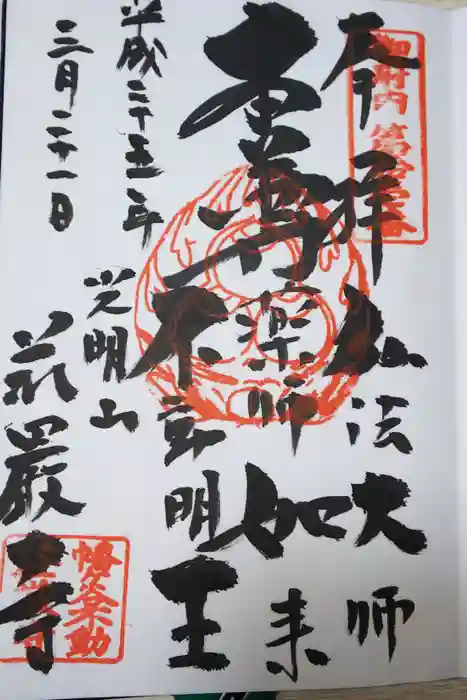 御府内 第拾壱番
奉拝 弘法大師
本尊 薬師如来
不動明王
平成二十五年
三月二十一日
光明山
荘厳寺
幡ヶ谷不動